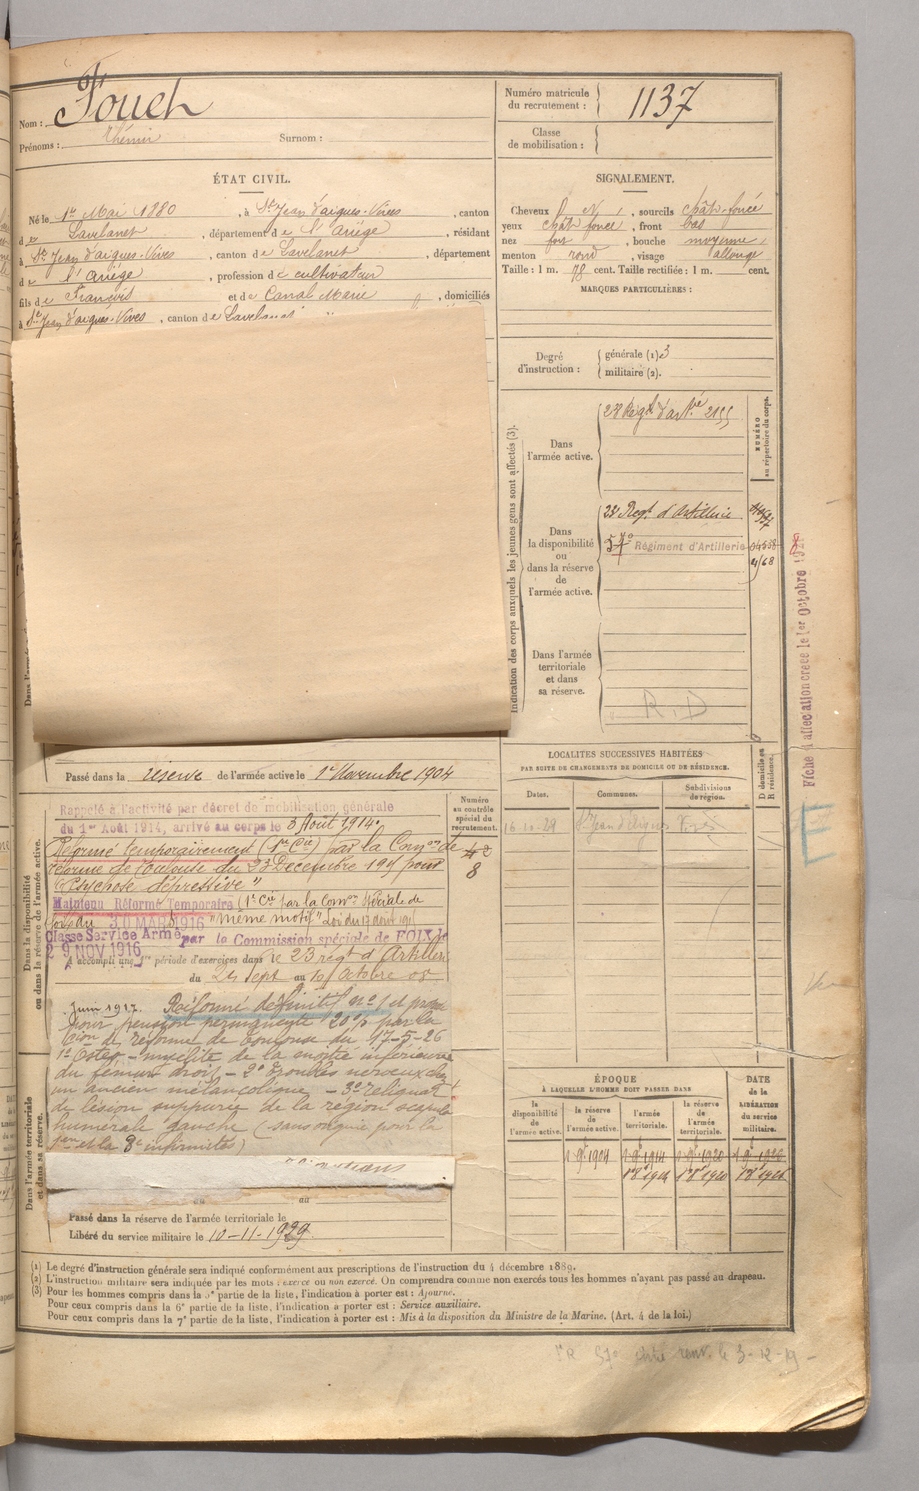 Nom : Fouch
Prénoms : Surnom :
Numéro matricule du recrutement : 1137
Classe de mobilisation :
ÉTAT CIVIL.
Né le 1er Mai 1880, à St Jean d'aigues-Vives, canton
de Lavelanet, département de l'Ariège, résidant
à St Jean d'aigues-Vives, canton de Lavelanet, département
de l'Ariège, profession de cultivateur
fils de François et de Canal Marie, domiciliés
à St Jean d'aigues-Vives, canton de Lavelanet
SIGNALEMENT.
Cheveux, sourcils chât-foncé
yeux chât foncé, front bas
nez fort, bouche moyenne,
menton rond, visage allongé
Taille : 1 m. 78 cent. Taille rectifiée : 1 m. cent.
MARQUES PARTICULIÈRES :
Degré d'instruction : générale (1) 3
militaire (2).
Indication des corps auxquels les jeunes gens sont affectés (3).
NUMÉRO au répertoire du corps.
Dans l'armée active.
23 Régt d'artie 2155
Dans la disponibilité ou dans la réserve de l'armée active.
23 Regt d'Artillerie
57e Régiment d'Artillerie
Dans l'armée territoriale et dans sa réserve.
R.D
Fiche d'affectation créée le 1er Octobre
Passé dans la réserve de l'armée active le 1er Novembre 1904
Dans la disponibilité ou dans la réserve de l'armée active.
Numéro au contrôle spécial du recrutement.
42
8
Rappelé à l'activité par décret de mobilisation générale
du 1er Août 1914, arrivé au corps le 3 Août 1914.
Réformé temporairement (1re Cie) par la Comon de
réforme de Toulouse du 23 Décembre 1915 pour
"Psychose dépressive"
Maintenu Réformé Temporaire (1e Cie par la Comon spéciale de
Foix du 30 MARS 1916 "même motif" Loi du 17 août 1915
Classé Service Armé par la Commission spéciale de FOIX le
29 NOV 1916
A accompli une 1re période d'exercices dans le 23 régt d'Artillerie
du 24 Sept au 10 Octobre 08
Juin 1917. Réformé définitif no 1 et propo
pour pension permanente 20% par la
Con de réforme de Toulouse du 17-5-26
1o Ostéo-myélite de la moitié inférieure
du fémur droit - 2o Troubles nerveux chez
un ancien mélancolique - 3o reliquat
de lésion suppurée de la région scapulo
humérale gauche (sans origine pour la
1ere et la 3e infirmités)
Dans l'armée territoriale et dans sa réserve.
au
Passé dans la réserve de l'armée territoriale le
Libéré du service militaire le 10-11-1929.
LOCALITÉS SUCCESSIVES HABITÉES
PAR SUITE DE CHANGEMENTS DE DOMICILE OU DE RÉSIDENCE.
Dates. Communes. Subdivisions de région.
D domicile ou R résidence.
St Jean d'Aigues Vives
ÉPOQUE
À LAQUELLE L'HOMME DOIT PASSER DANS
DATE de la LIBÉRATION du service militaire.
la disponibilité de l'armée active.
la réserve de l'armée active.
l'armée territoriale.
la réserve de l'armée territoriale.
1 9bre 1904 1 9bre 1914 1 9bre 1920 1 9bre 1926
(1) Le degré d'instruction générale sera indiqué conformément aux prescriptions de l'instruction du 4 décembre 1889.
(2) L'instruction militaire sera indiquée par les mots exercé ou non exercé. On comprendra comme non exercés tous les hommes n'ayant pas passé au drapeau.
(3) Pour les hommes compris dans la 5e partie de la liste, l'indication à porter est : Ajourné.
Pour ceux compris dans la 6e partie de la liste, l'indication à porter est : Service auxiliaire.
Pour ceux compris dans la 7e partie de la liste, l'indication à porter est : Mis à la disposition du Ministre de la Marine. (Art. 4 de la loi.)